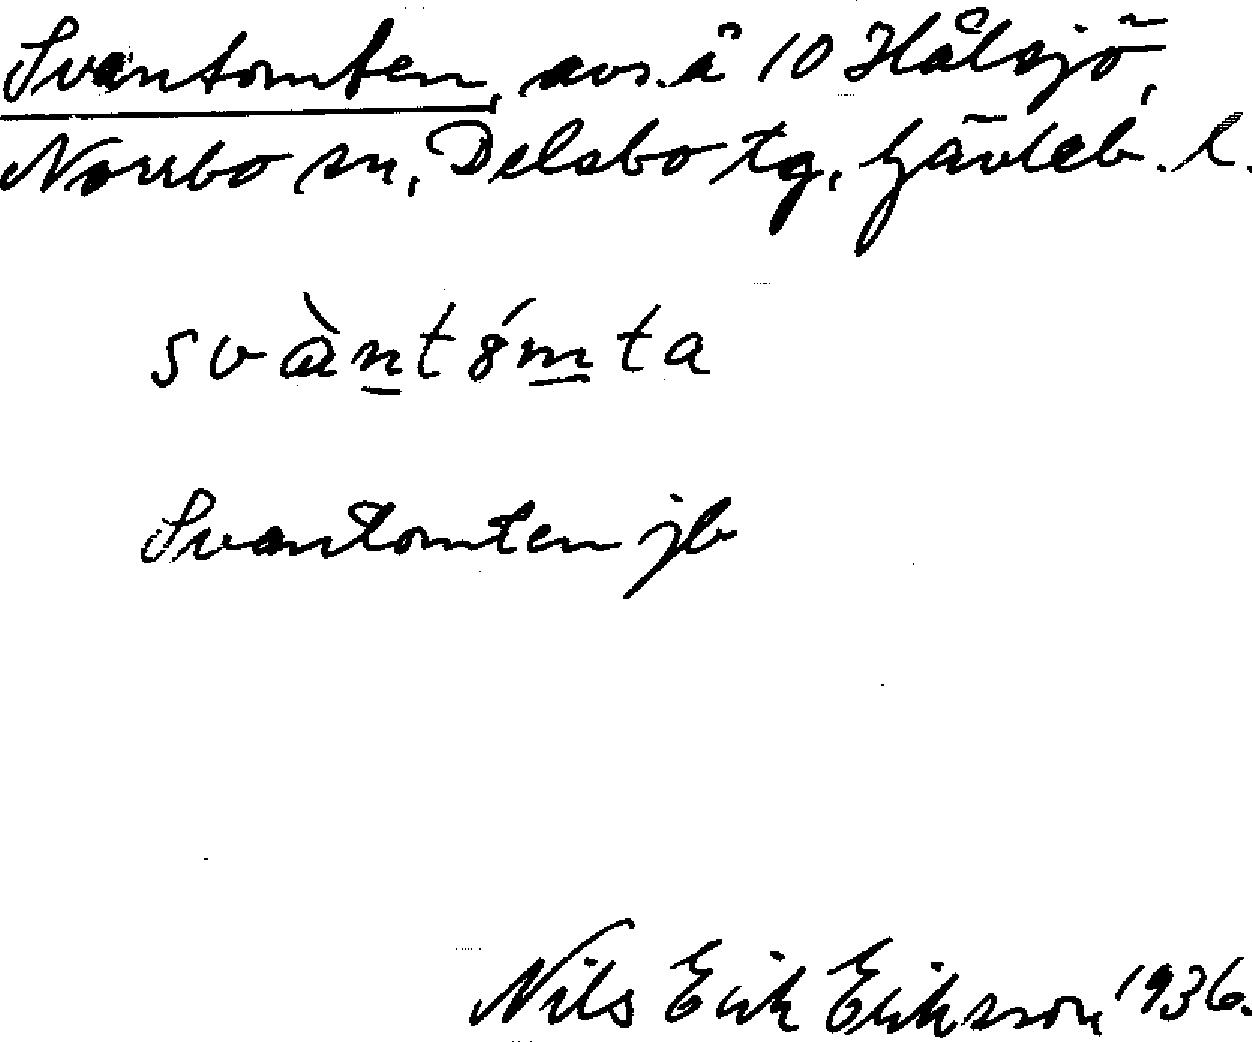 Svantomten, avs. å 10 Hålsjö,
Norrbo sn, Delsbo tg, Gävleb. l.
svàn̲tǿm̲ta
Svantomten jb
Nils Erik Eriksson 1936.